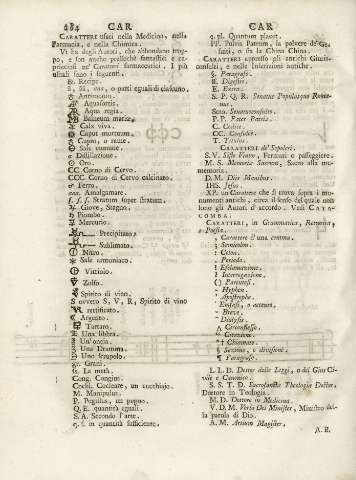 284 CAR
CARATTERI usati nella Medicina, nella
Farmacia, e nella Chimica.
Vi ha degli Autori, che abbondano troppo,
e son anche
principj ne' Caratteri farmaceutici. I più
usitati sono i seguenti.
℞ Recipe.
o parti eguali di ciascuno.
Antimonio.
Aquafortis.
Aqua regia.
Balneum mariæ.
Calx viva.
Caput mortuum.
Cupro, o rame
Sale comune.
Distillazione.
Oro.
CC Corno di Cervo.
CCC Corno di Cervo calcinato.
♂ Ferro.
Amalgamare.
f. f. f. Stratum super stratum.
♃ Giove, Stagno.
♄ Piombo.
☿ Mercurio.
Precipitato.
Sublimato.
Nitro.
Sale armoniaco.
Vitriolo.
Zolfo.
Spirito di vino.
S ovvero S, V, R, Spirito di vino
rettificato.
☾ Argento.
Tartaro.
Una libbra.
Un'oncia.
Una Dramma.
Uno scrupolo.
gr. Grani.
ſs. La metà.
Cong. Congius.
Cochl. Cocleare, un cucchiajo.
M. Manipulus.
P. Pugillus, un pugno.
Q. E. quantità eguali.
S. A. Secondo l'arte.
q. s. in quantità sufficiente.
CAR
q. pl. Quantum placet.
PP. Pulvis Patrum, la polvere de' Gesuiti,
o sia la China China.
CARATTERI appresso gli antichi Giurisconsulti,
e nelle Inscrizioni antiche.
§. Paragrafo.
ff. Digesto.
E. Extra.
S. P. Q. R. Senatus Populusque Romanus.
P. P. Pater Patriæ.
C. Codice.
CC. Consules.
T. Titulus.
CARATTERI de' Sepolcri.
S. V. Siste Viator, Fermati o passeggiere.
M. S. Memoriæ Sacrum, Sacro alla memoria.
D. M. Diis Manibus.
IHS. Jesus.
XP. un Carattere che si trova sopra i monumenti
antichi, circa il senso del quale non
sono gli Autori d'accordo. Vedi CATACOMBA.
CARATTERI, in Grammatica, Rettorica,
e Poesia.
, Carattere d'una comma.
; Semicolon.
: Colon.
. Periodo.
! Esclamazione.
? Interrogazione.
( ) Parentesi.
- Hyphen.
' Apostrophe.
´ Enfasi, o accento.
˘ Breve.
¨ Dialysis.
^ Circonflesso.
" Citazione.
† Chiamate.
§ Sezione, o divisione.
¶ Paragrafo.
L. L. D. Dottor delle Leggi, o del Gius Civile
e Canonico.
S. S. T. D. Sacrosanctæ Theologiæ Doctor,
Dottore in Teologia.
M. D. Dottore in Medicina.
V. D. M. Verbi Dei Minister, Ministro della
parola di Dio.
A. M. Artium Magister,
A. B.